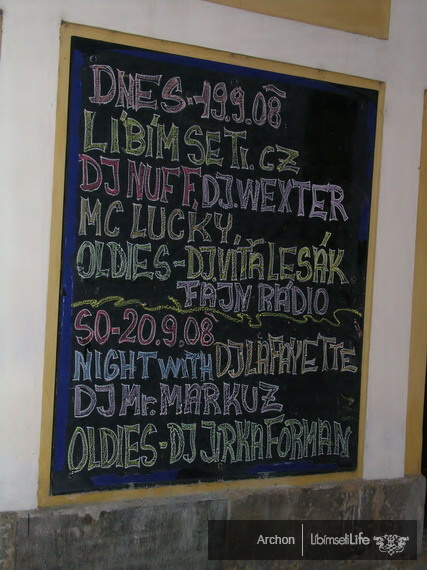 DNES - 19.9.08
LÍBÍM SE TI.CZ
DJ NUFF, DJ.WEXTER
MC LUCKY,
OLDIES - DJ.VÍŤA LESÁK
FAJN RÁDIO
SO - 20.9.08
NIGHT WITH DJ LAFAYETTE
DJ Mr. MARKUZ
OLDIES - DJ JIRKA FORMAN
Archon LíbímseTiLife